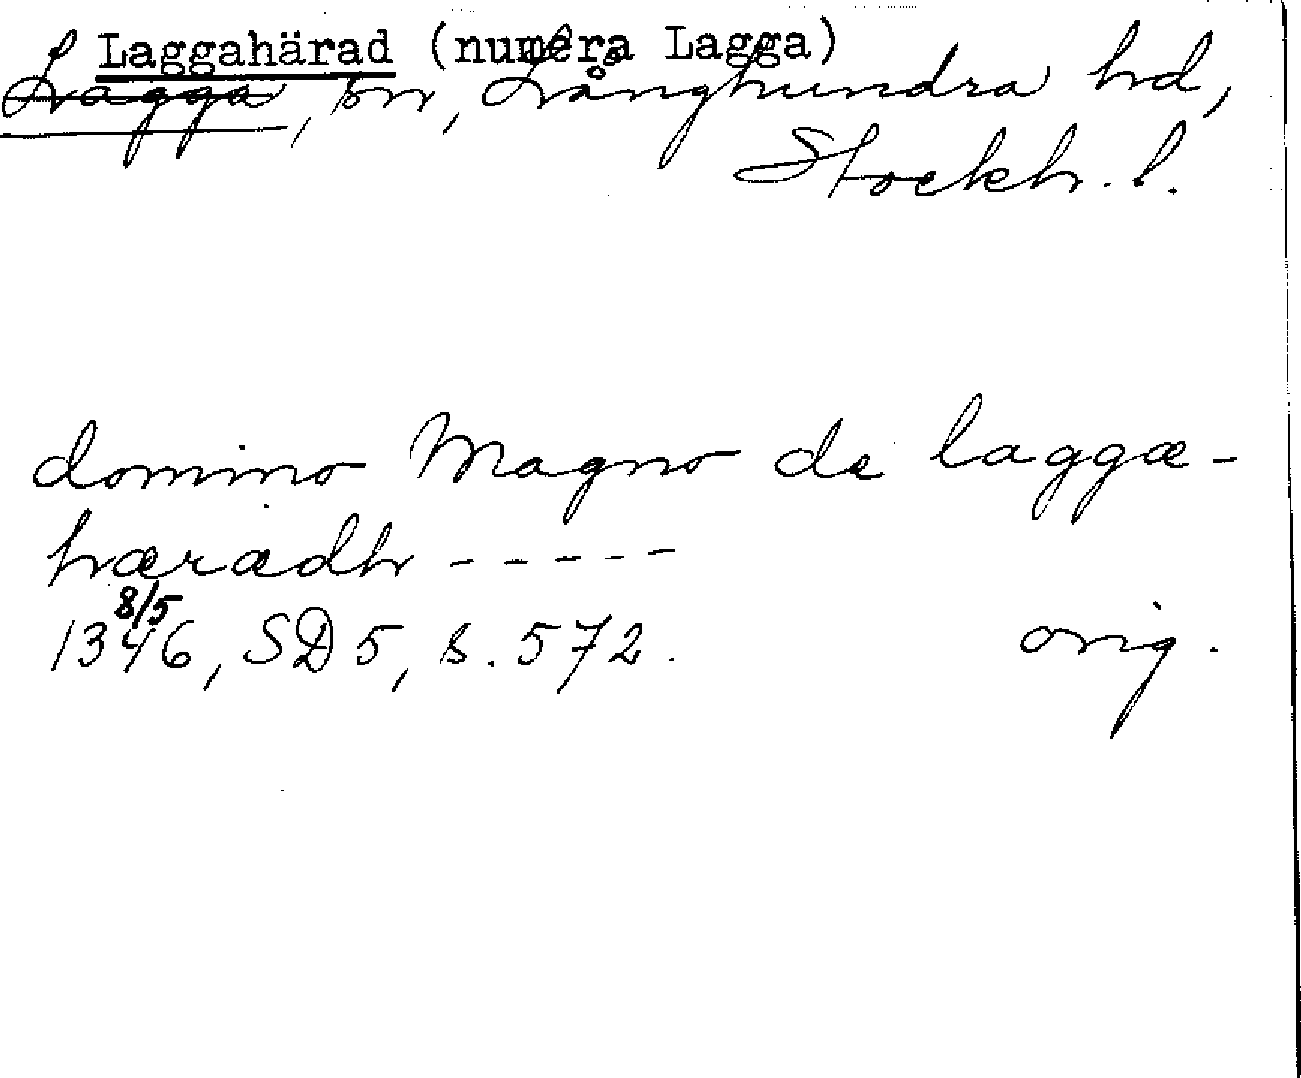 Laggahärad (numera Lagga)
Lagga, sn, Långhundra hd,
Stockh. l.
domino Magno de laggæ-
hæradh -----
8/5
1346, SD 5, s. 572.
orig.